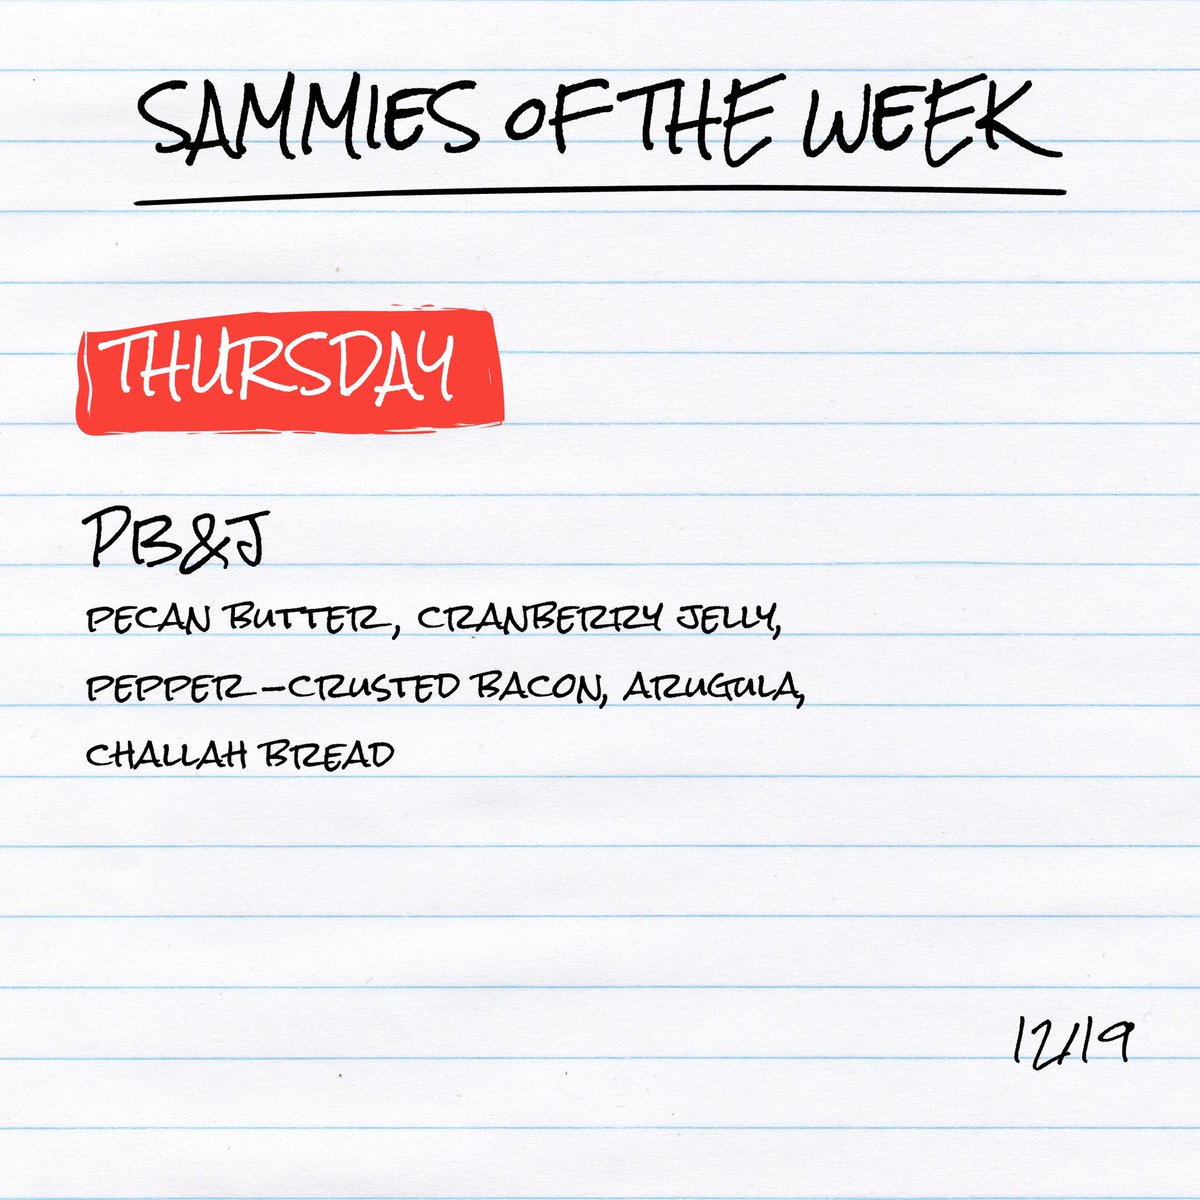 SAMMIES OF THE WEEK
THURSDAY
PB&J
PECAN BUTTER, CRANBERRY JELLY,
PEPPER-CRUSTED BACON, ARUGULA,
CHALLAH BREAD
12/19